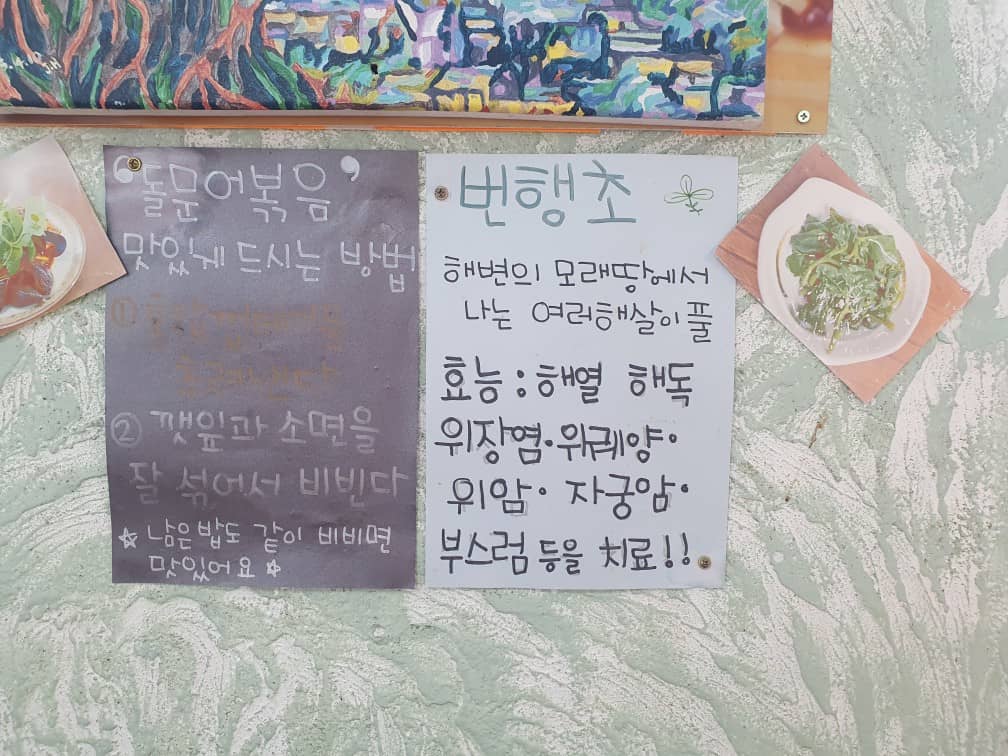 “돌문어볶음”
맛있게 드시는 방법
①
② 깻잎과 소면을
잘 섞어서 비빈다
☆ 남은밥도 같이 비비면
맛있어요 ☆
번행초
해변의 모래땅에서
나는 여러해살이풀
효능 : 해열 해독
위장염·위궤양·
위암· 자궁암·
부스럼 등을 치료!!